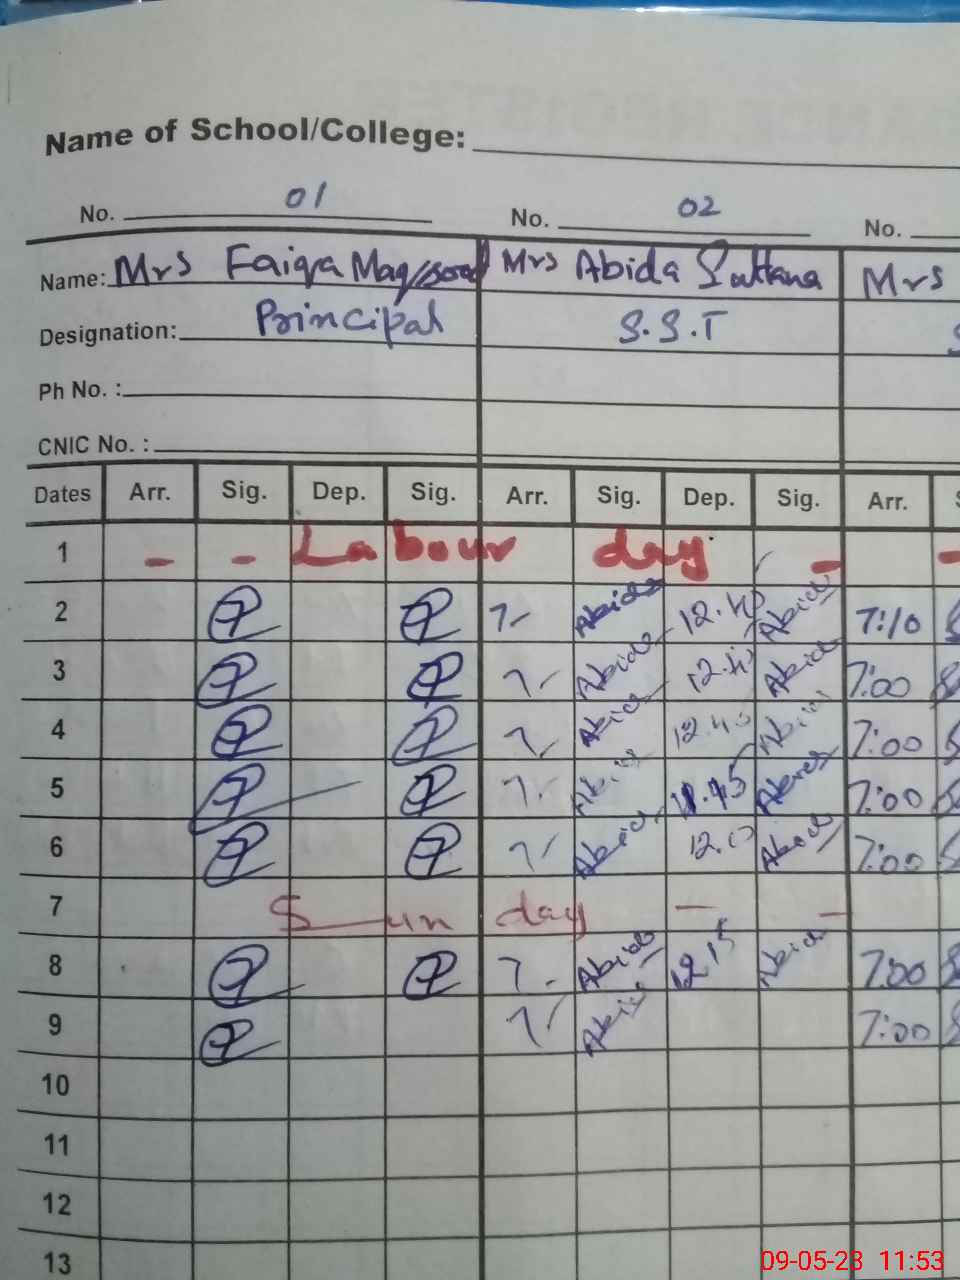 Name of School/College:
No. 01 No. 02 No.
Name: Mrs Faiqa Maqsood Mrs Abida Sultana Mrs
Designation: Principal S.S.T
Ph No. :
CNIC No. :
Dates Arr. Sig. Dep. Sig. Arr. Sig. Dep. Sig. Arr.
1 - - Labour day - -
2 7- Abida 12.40 Abida 7:10
3 7- Abida 12.40 Abida 7:00
4 7- Abida 12.40 Abida 7:00
5 7- Abida Abida 7:00
6 7- Abida Abida 7:00
7 Sunday - -
8 7- Abida 12 15 Abida 7:00
9 7- Abida 7:00
10
11
12
13
09-05-23 11:53